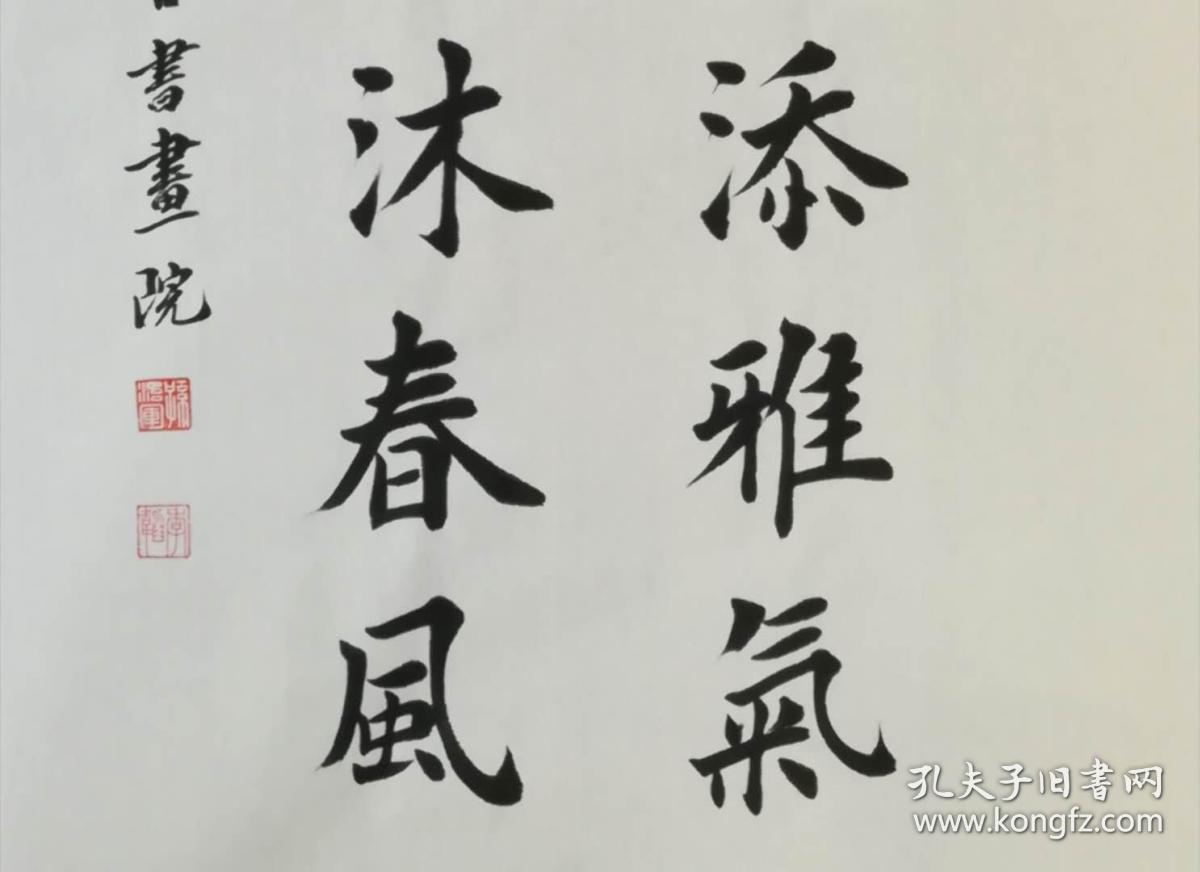 添雅氣
沐春風
書畫院
孔夫子旧书网
www.kongfz.com